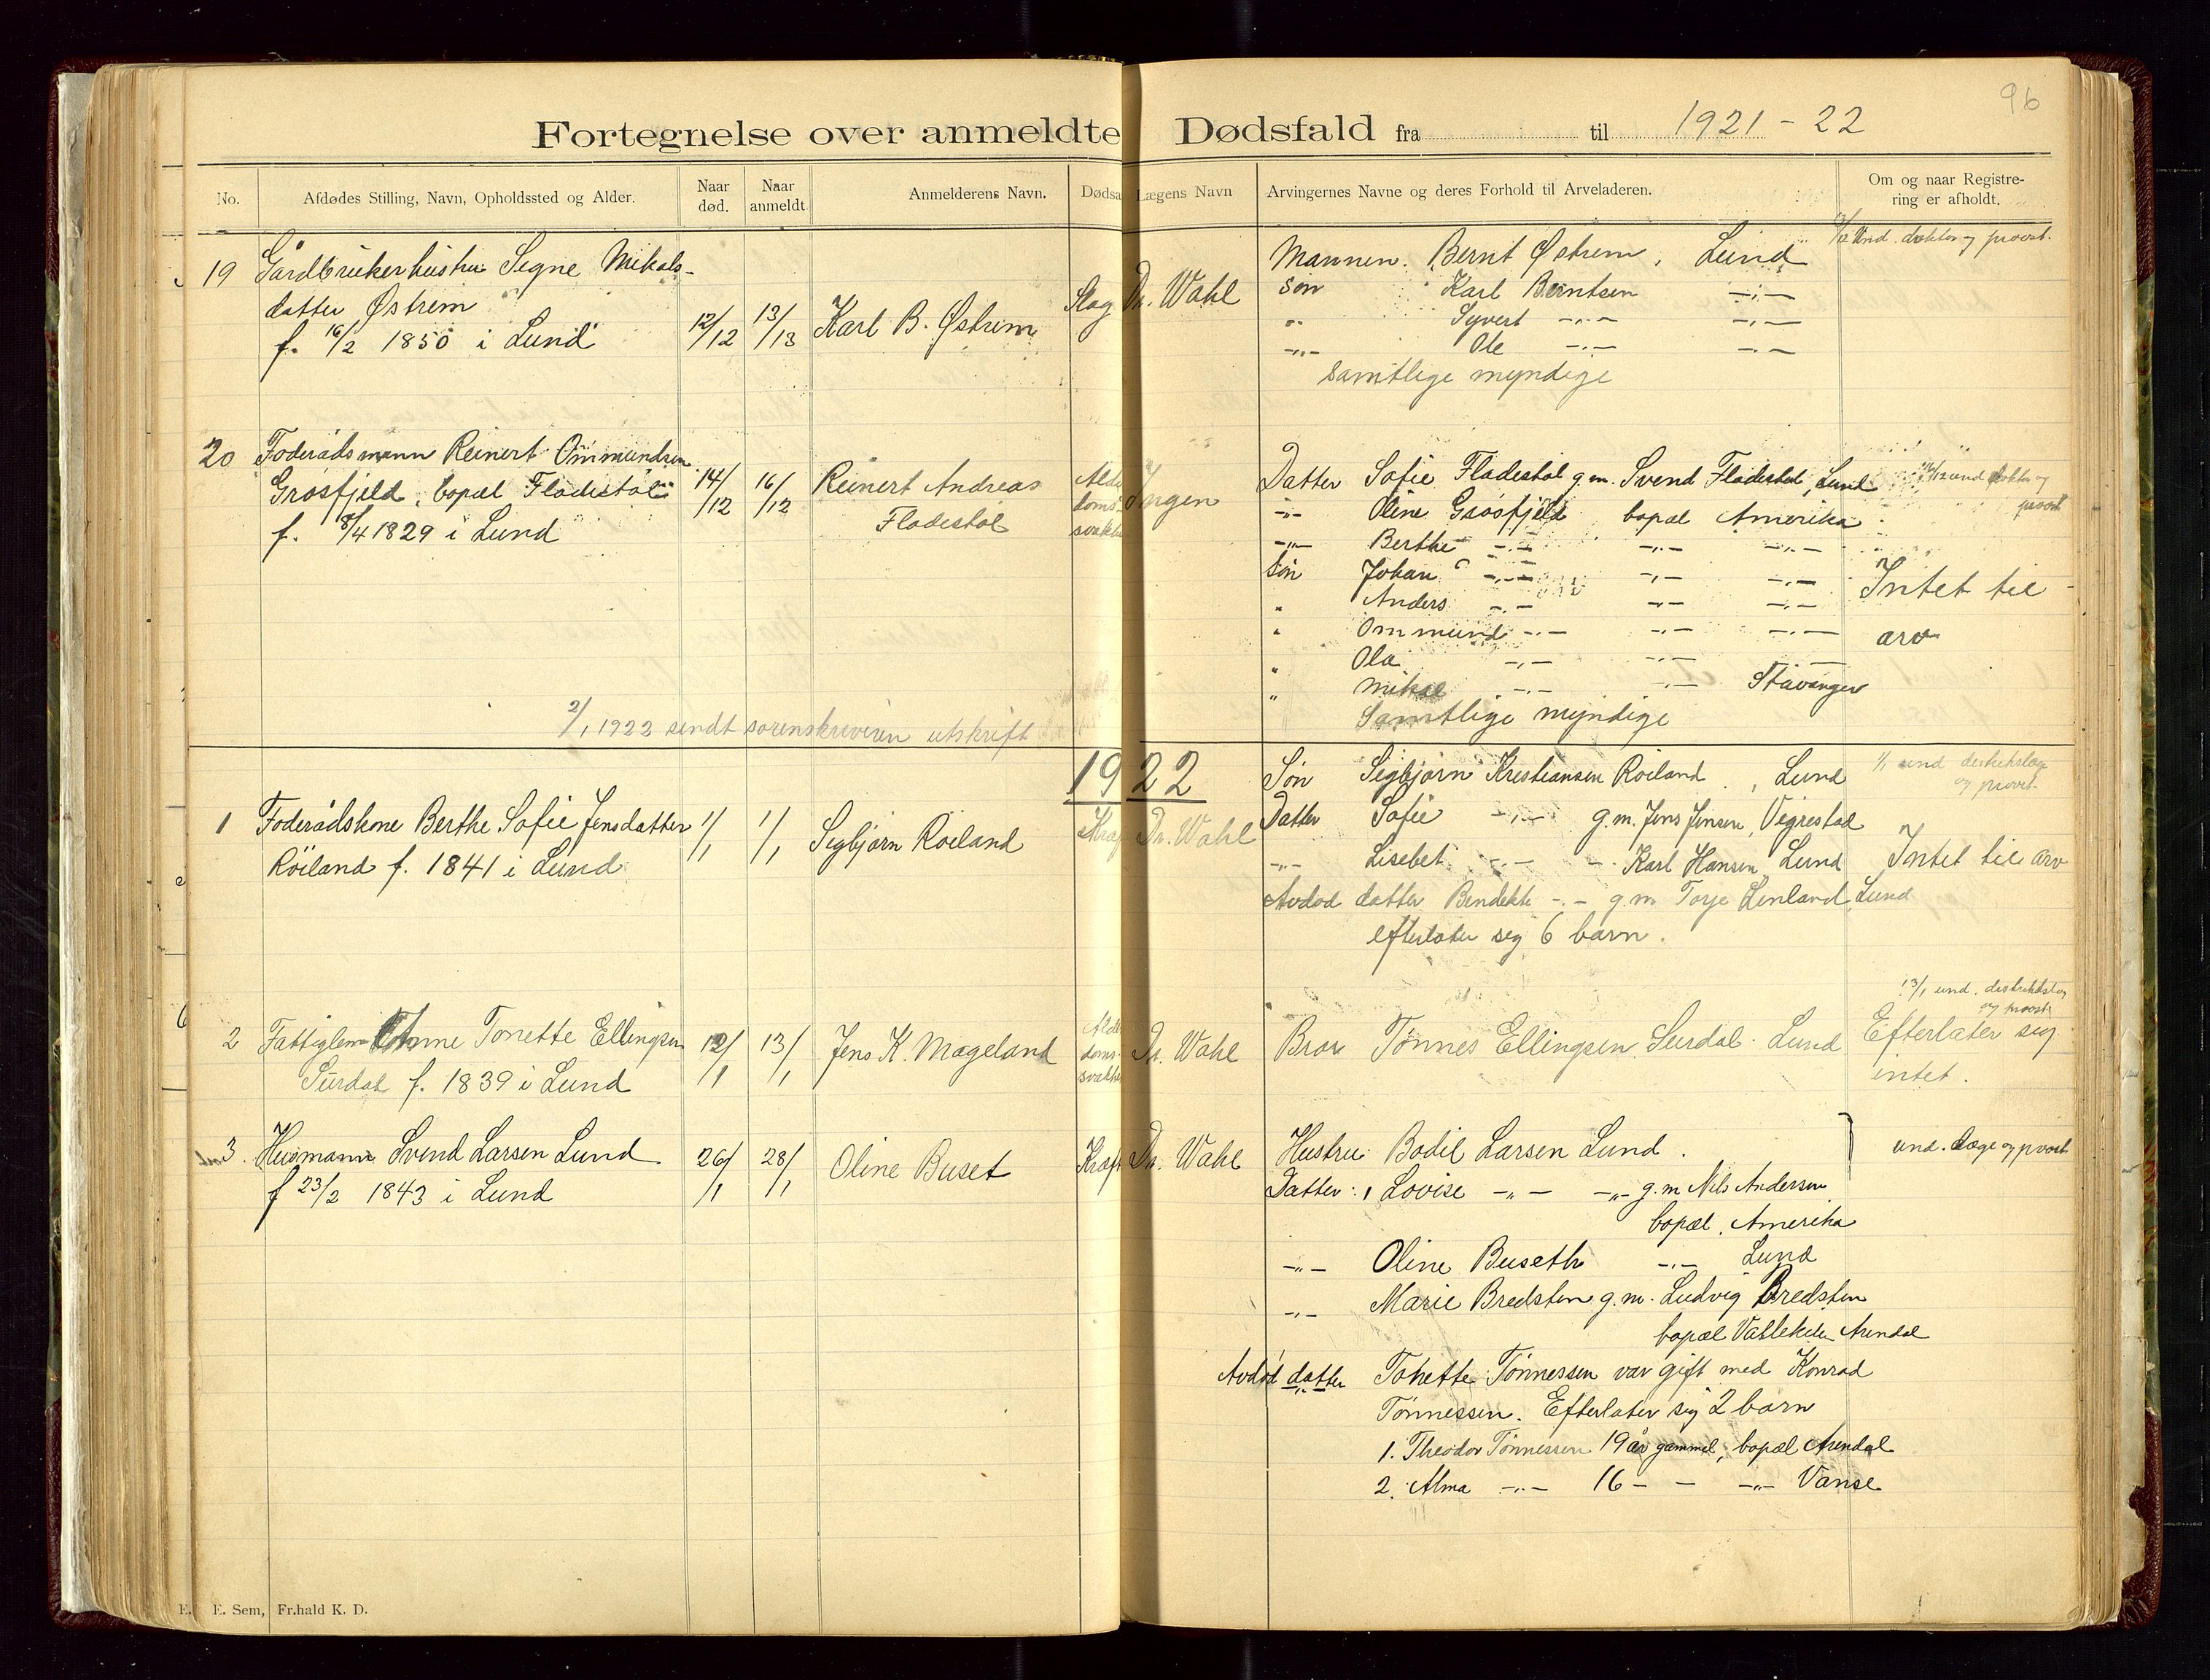 96
Fortegnelse over anmeldte Dødsfald fra til 1921-22
No. Afdødes Stilling, Navn, Opholdssted og Alder. Naar død. Naar anmeldt. Anmelderens Navn. Dødsa Lægens Navn Arvingernes Navne og deres Forhold til Arveladeren. Om og naar Registrering er afholdt.
19 Gårdbrukerhustru Signe Mikals-
datter Østrem
f. 16/2 1850 i Lund
12/12 13/13 Karl B. Østrem Slag Dr. Wahl
Mannen. Bernt Østrem, Lund
Søn Karl Berntsen -"-
" Syvert -"- -"-
-"- Ole -"- -"-
Samtlige myndige
und. doktor og provst.
20 Foderådsmann Reinert Ommundsen
Grøsfjeld, bopæl Fladestøl
f. 8/4 1829 i Lund
14/12 16/12 Reinert Andreas
Fladestøl
Alder
doms
svakh
Ingen
Datter Sofie Fladestøl g.m. Svend Fladestøl, Lund
-"- Oline Grøsfjeld bopæl Amerika
-"- Berthe -"- -"- -"-
Søn Johan -"- -"- -"-
" Anders -"- -"- -"-
" Ommund -"- -"- -"-
" Ola -"- -"- -
" Mikal -"- -"- Stavanger
Samtlige myndige
und doktor og
provst
Intet til
arv
2/1 1922 sendt sorenskriveren utskrift
1922
1 Foderådskone Berthe Sofie Jensdatter
Røiland f. 1841 i Lund
1/1 1/1 Sigbjørn Røiland Kræf Dr. Wahl
Søn Sigbjørn Kristiansen Røiland, Lund
Datter Sofie -"- g.m. Jens Jensen, Vigrestad
-"- Lisebet -"- - Karl Hansen, Lund
Avdød datter Bendikte -"- g.m Torje Linland, Lund
efterlater sig 6 barn.
1/1 und distriktslæge
og provst.
Intet til arv
2 Fattiglem Anne Tonette Ellingsen
Surdal f. 1839 i Lund
12/1 13/1 Jens K. Mageland
Alder
doms
svakhe
Dr. Wahl
Bror Tønnes Ellingsen Surdal. Lund
13/1 und. distriktslæg
og provst
Efterlater sig
intet.
3. Husmann Svend Larsen Lund
f 23/2 1843 i Lund
26/1 28/1 Oline Buset Kræft Dr. Wahl
Hustru Bodil Larsen Lund.
Datter: Lovise -"- -"- g.m Nils Andersen
bopæl Amerika
-"- Oline Buseth -"- Lund
-"- Marie Bredsten g.m. Ludvig Bredsten
bopæl Arendal
Avdød datter Tonette Tønnessen var gift med Konrad
Tønnessen. Efterlater sig 2 barn
1. Theodor Tønnessen 19 år gammel, bopæl Arendal
2. Alma -"- 16 - - -"- Vanse
und. læge og provst
E. E. Sem, Fr.hald K. D.